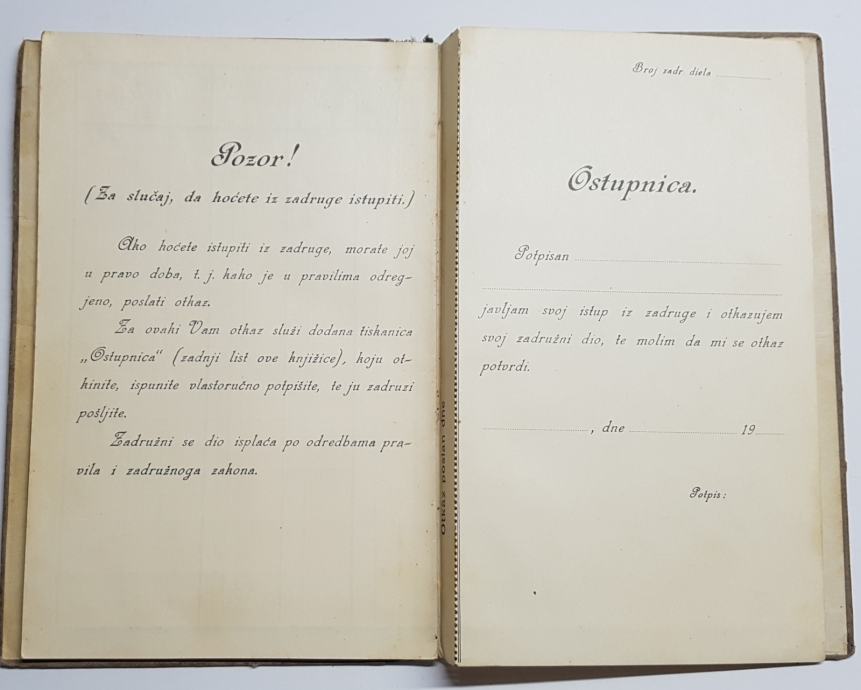 Pozor!
(Za slučaj, da hoćete iz zadruge istupiti.)
Ako hoćete istupiti iz zadruge, morate joj
u pravo doba, t. j. kako je u pravilima odreg-
jeno, poslati otkaz.
Za ovaki Vam otkaz služi dodana tiskanica
„Ostupnica“ (zadnji list ove knjižice), koju ot-
kinite, ispunite vlastoručno potpišite, te ju zadruzi
pošljite.
Zadružni se dio isplaća po odredbama pra-
vila i zadružnoga zakona.
Otkaz poslan dne
Broj zadr diela
Ostupnica.
Potpisan
javljam svoj istup iz zadruge i otkazujem
svoj zadružni dio, te molim da mi se otkaz
potvrdi.
, dne 19
Potpis: